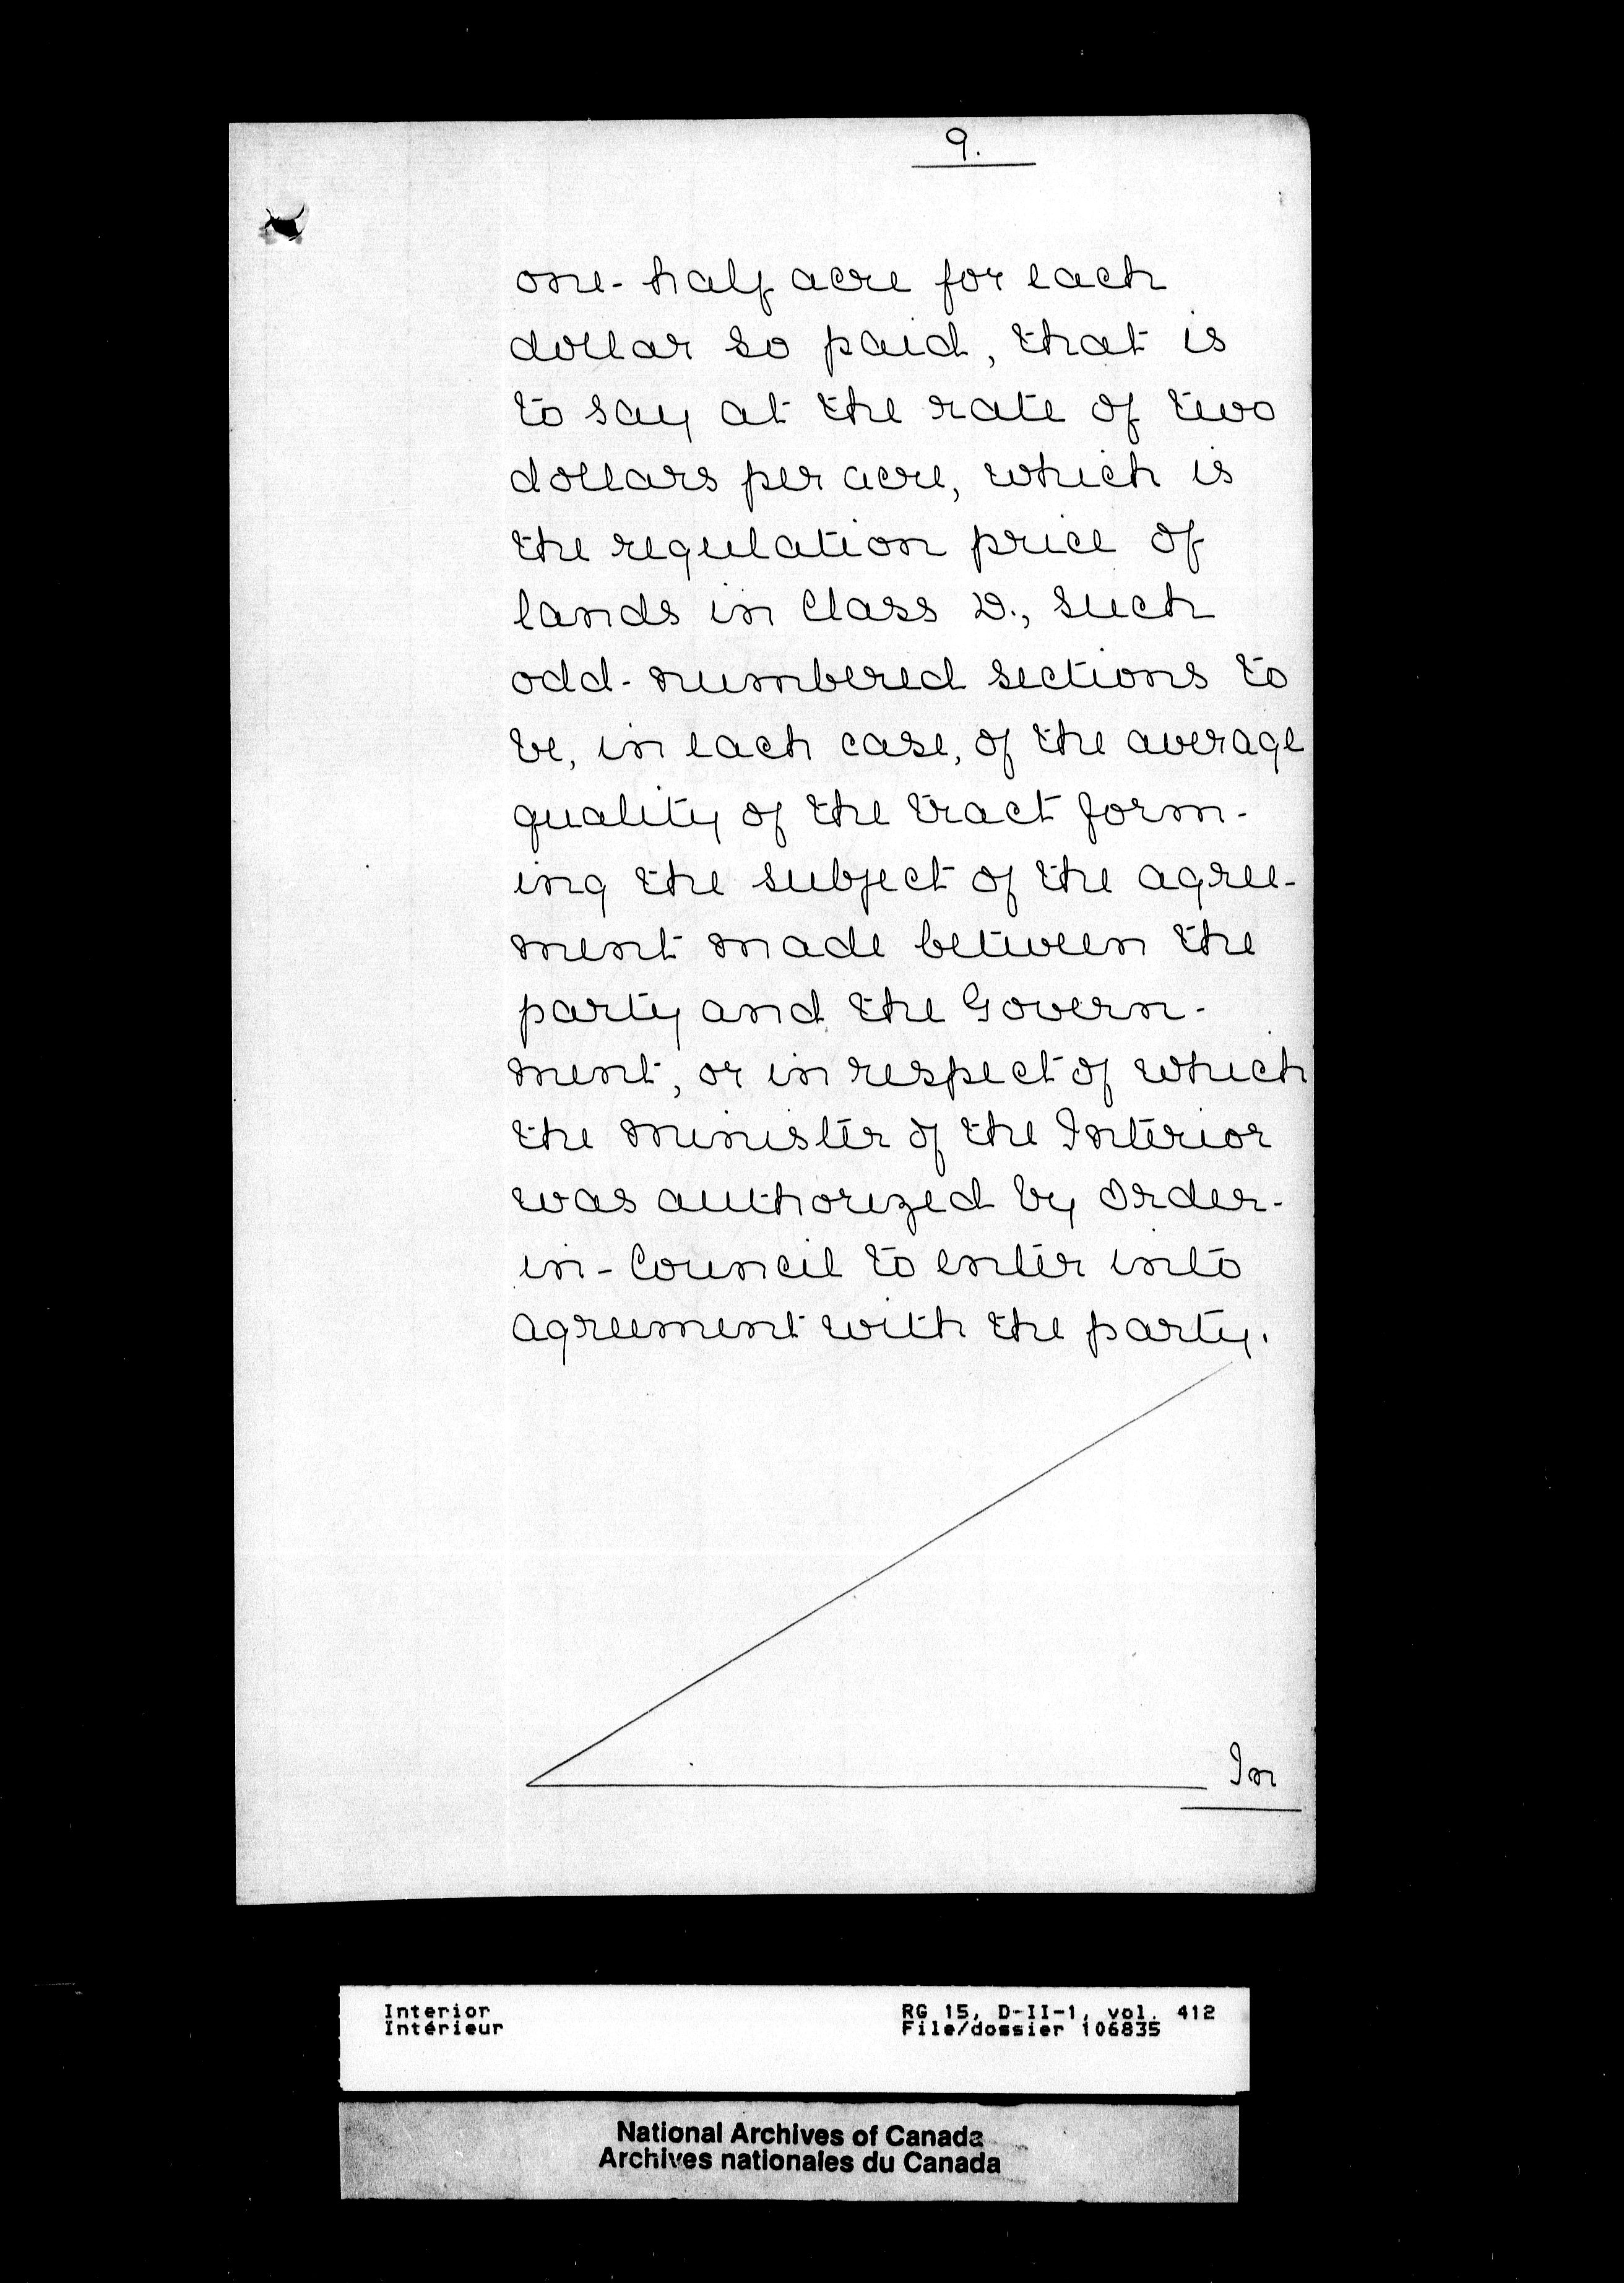 9.
one-half acre for each
dollar so paid, that is
to say at the rate of two
dollars per acre, which is
the regulation price of
lands in Class D., such
odd-numbered sections to
be, in each case, of the average
quality of the tract form-
ing the subject of the agree-
ment made between the
party and the Govern-
ment, or in respect of which
the Minister of the Interior
was authorized by Order-
in-Council to enter into
agreement with the party.
In
Interior RG 15, D-II-1, vol. 412
Intérieur File/dossier 106835
National Archives of Canada
Archives nationales du Canada